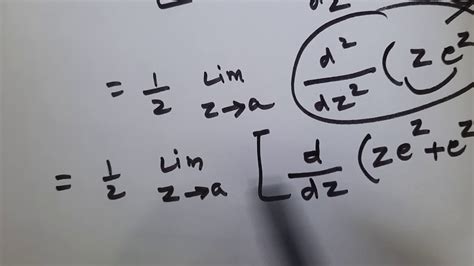 dz
= 1/2 Lim z→a d²/dz² (z e^z
= 1/2 Lim z→a [ d/dz (z e^z + e^z